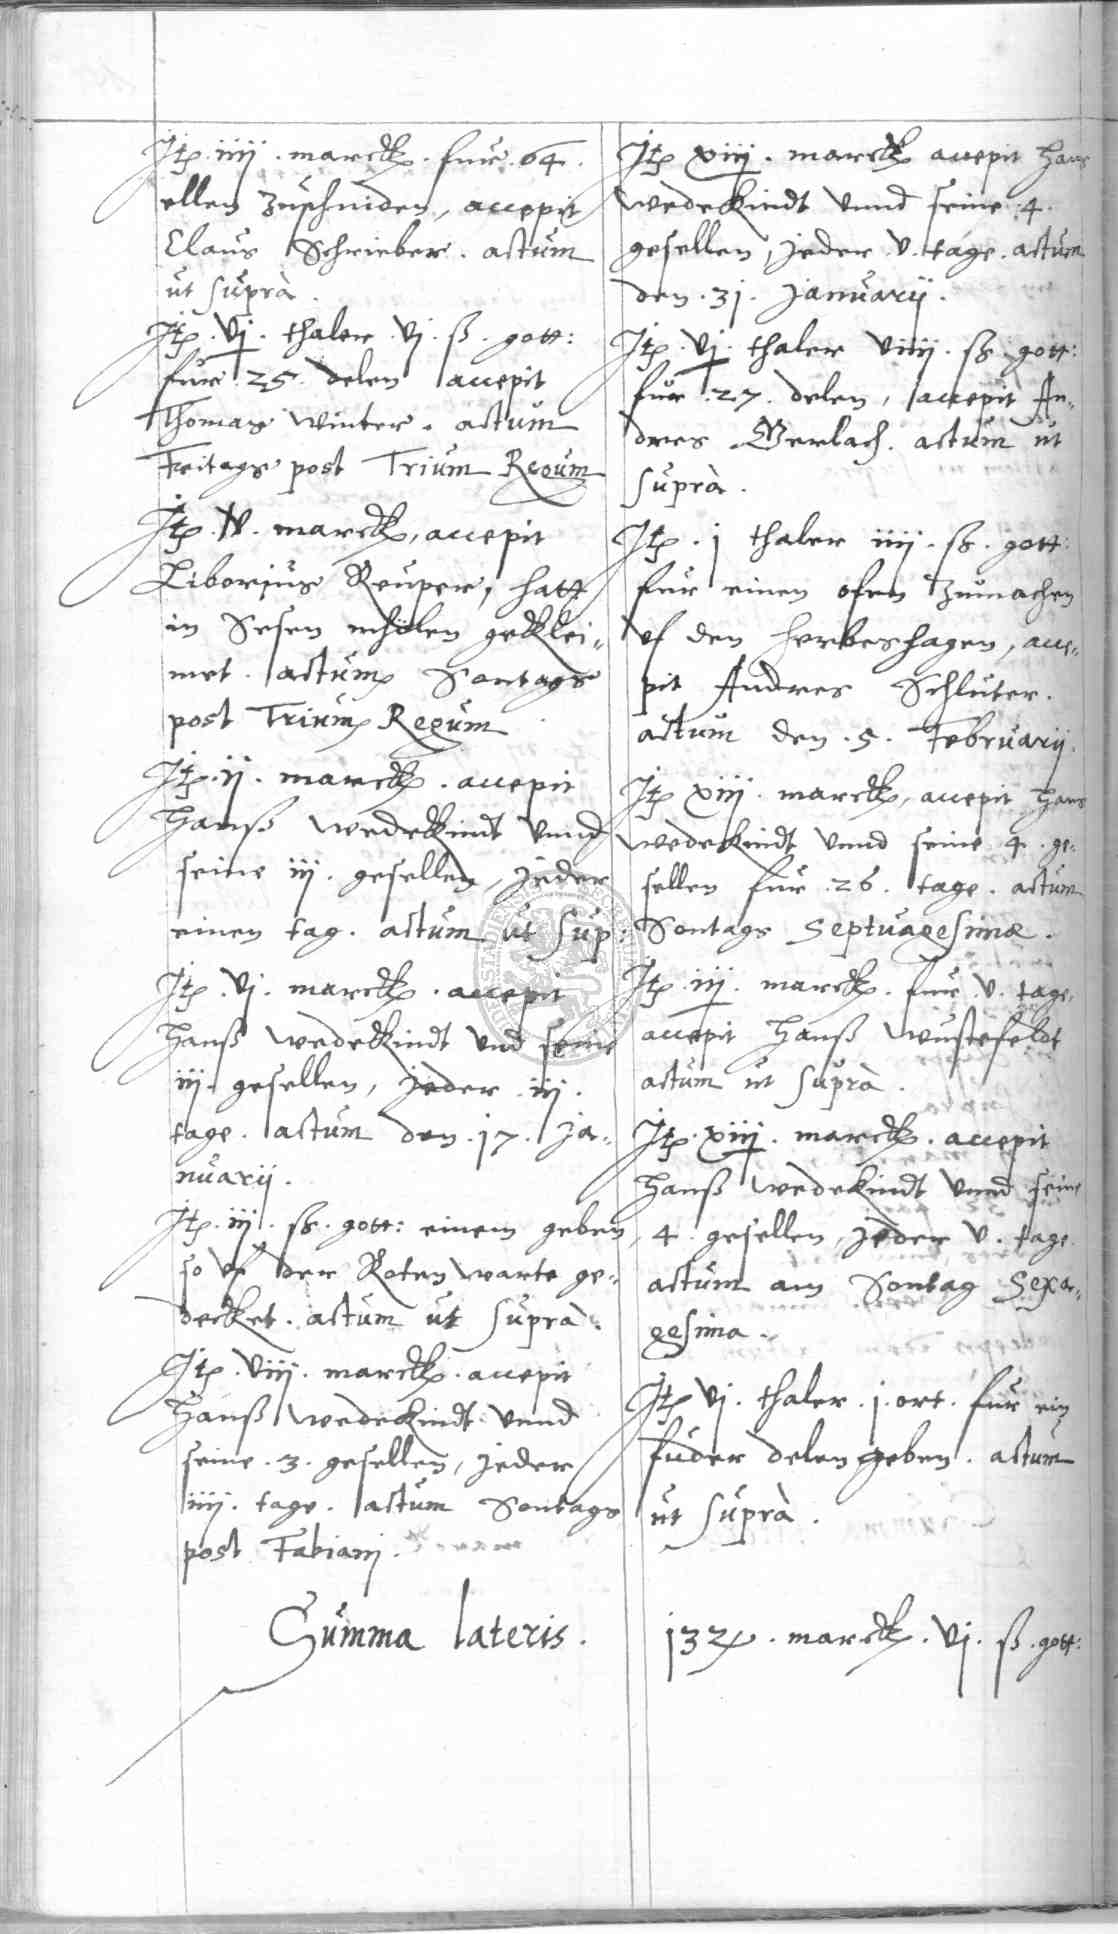 Itz. iiij. marck. fur. 64.
ellen zuschniden, accepit
Claus Schrieber. actum
ut suprà.
Itz. vj. thaler. vj. ß. gott:
fur 25. delen accepit
Thomas Winter. actum
Freitags post Trium Regum
Itz. iv. marck, accepit
Liborius Reuper, hatt
in Sesen mholen geklei-
met. actum Sontags
post Trium Regum
Itz. ij. marck. accepit
Hanß Wedekindt unnd
seine iij. gesellen, jeder
einen tag. actum ut sup:
Itz. vj. marck. accepit
Hanß Wedekindt und seine
iij. gesellen, jeder iij.
tage. actum den. 17. Ja-
nuarij.
Itz. iij. ß. gott: einem geben,
so uf der Roten warte ge-
decket. actum ut suprà.
Itz. viij. marck. accepit
Hanß Wedekindt unnd
seine. 3. gesellen, jeder
iiij. tage. actum Sontags
post Fabianj.
Itz xiij. marck accepit Hans
Wedekindt unnd seine 4.
gesellen, jeder v. tage. actum
den. 31. Januarij.
Itz. vj. thaler viiij. ß. gott:
fur. 27. delen, accepit An-
dres Gerlach. actum ut
suprà.
Itz. j thaler iiij. ß. gott:
fur einen ofen zumachen
uf den Herbershagen, acce-
pit Andres Schluter.
actum den. 5. Februarij.
Itz xiij. marck, accepit Hans
Wedekindt unnd seine 4. ge-
sellen fur. 26. tage. actum
Sontags Septuagesimæ.
Itz. iij. marck. fur. v. tage,
accepit Hanß Wustefeldt
actum ut suprà.
Itz. xiij. marck. accepit
Hanß Wedekindt unnd seine
4. gesellen, jeder v. tage.
actum am Sontag Sexa-
gesima.
Itz vj. thaler. j. ort. fur ein
fuder delen geben. actum
ut suprà.
Summa lateris. marck. vj. ß. gott: